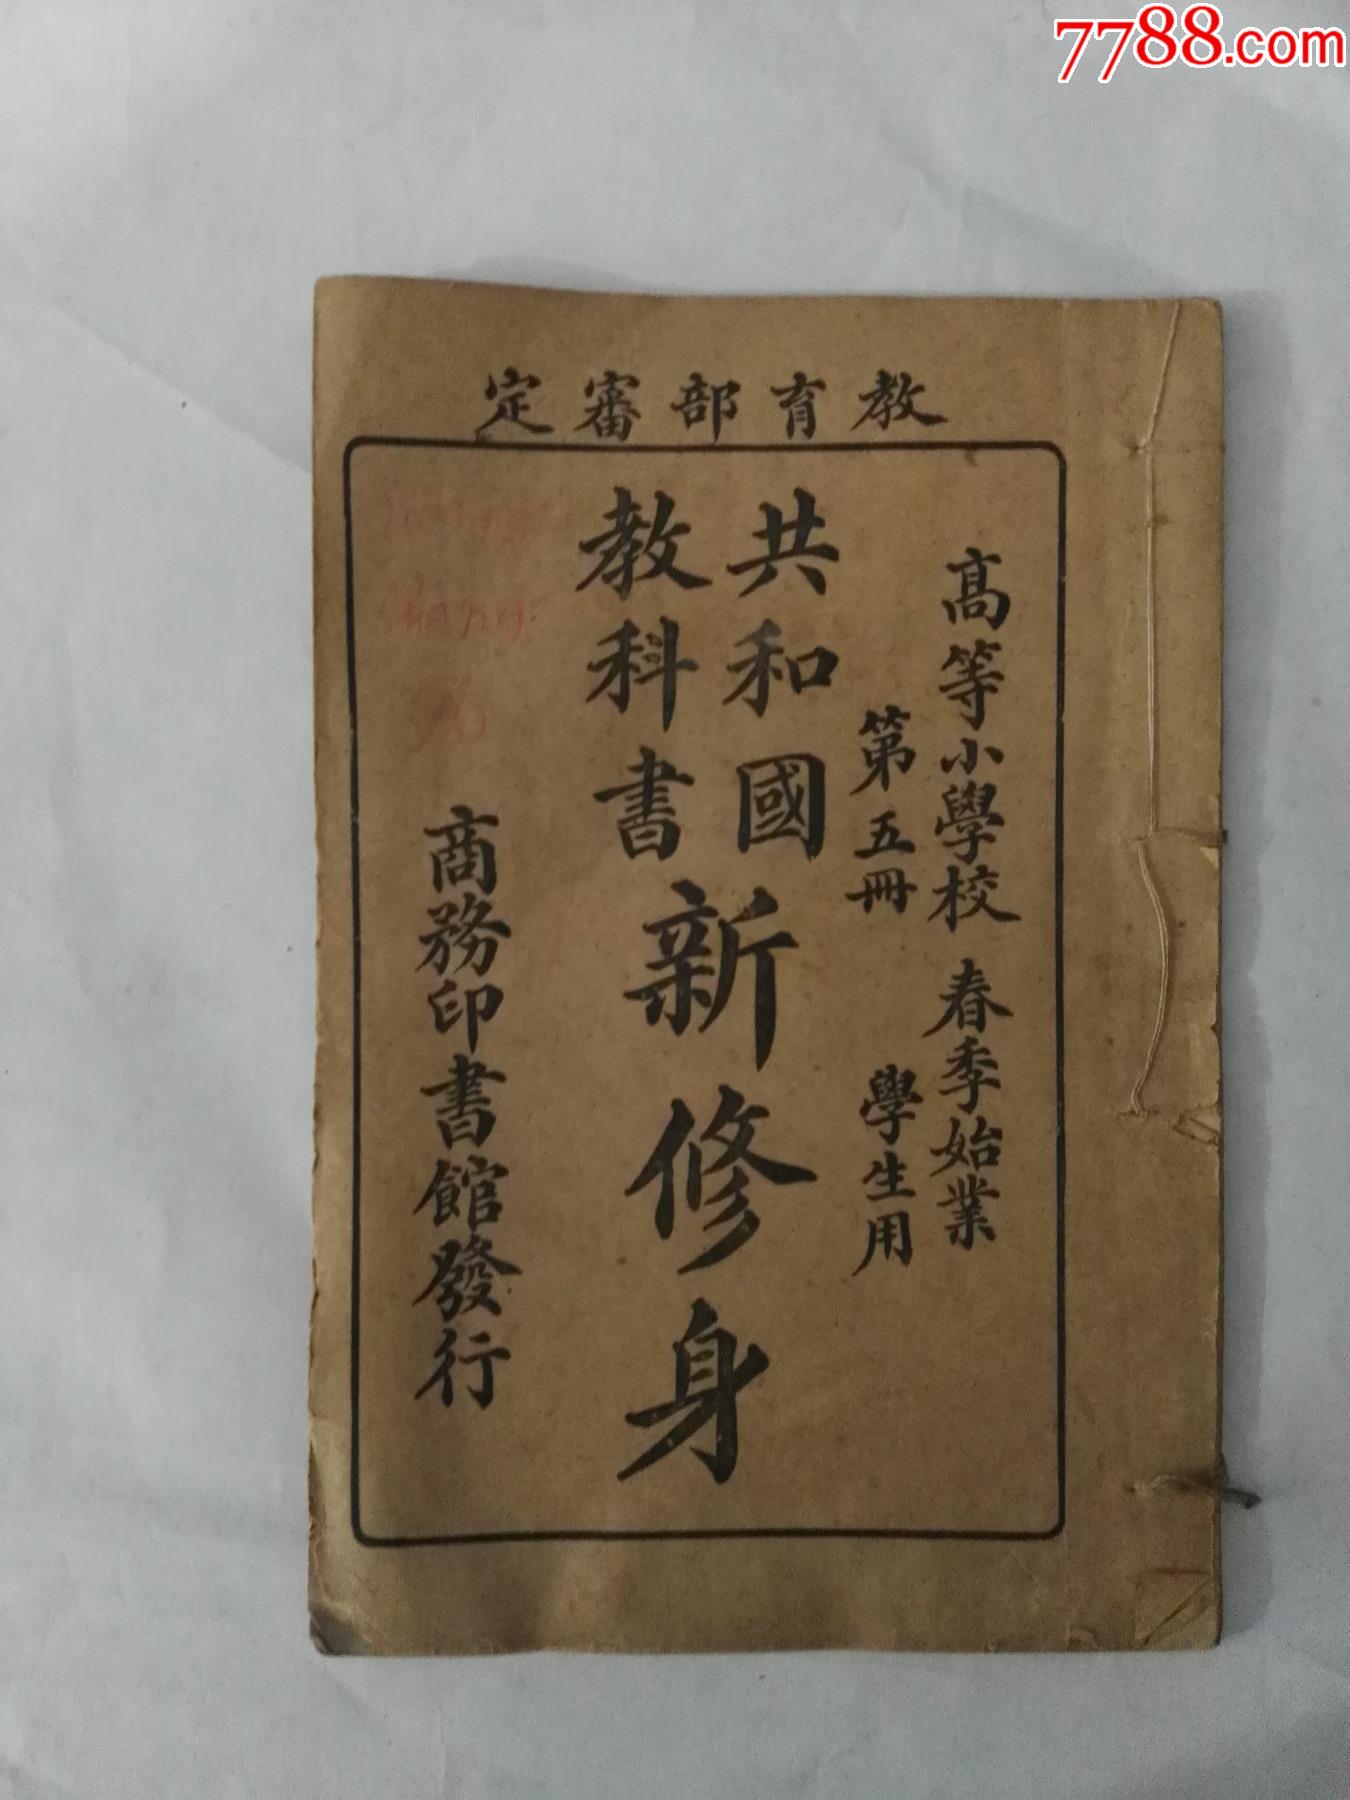 7788.com
教育部審定
高等小學校 春季始業
第五冊 學生用
共和國
教科書
新修身
商務印書館發行